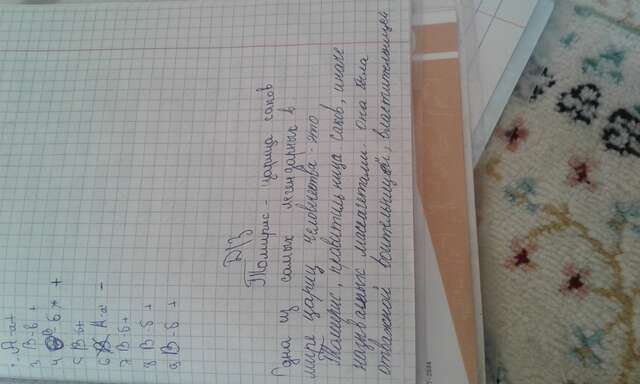 3 В-в +
5 В-в+
7 В-в+
8 В-в +
9 В-в +
Д/З
Томирис - царица саков
Одна из самых легендарных в
мире цариц человечества - это
Томирис, правительница саков, иначе
называемых массагетами. Она была
отважной воительницей, властительницей